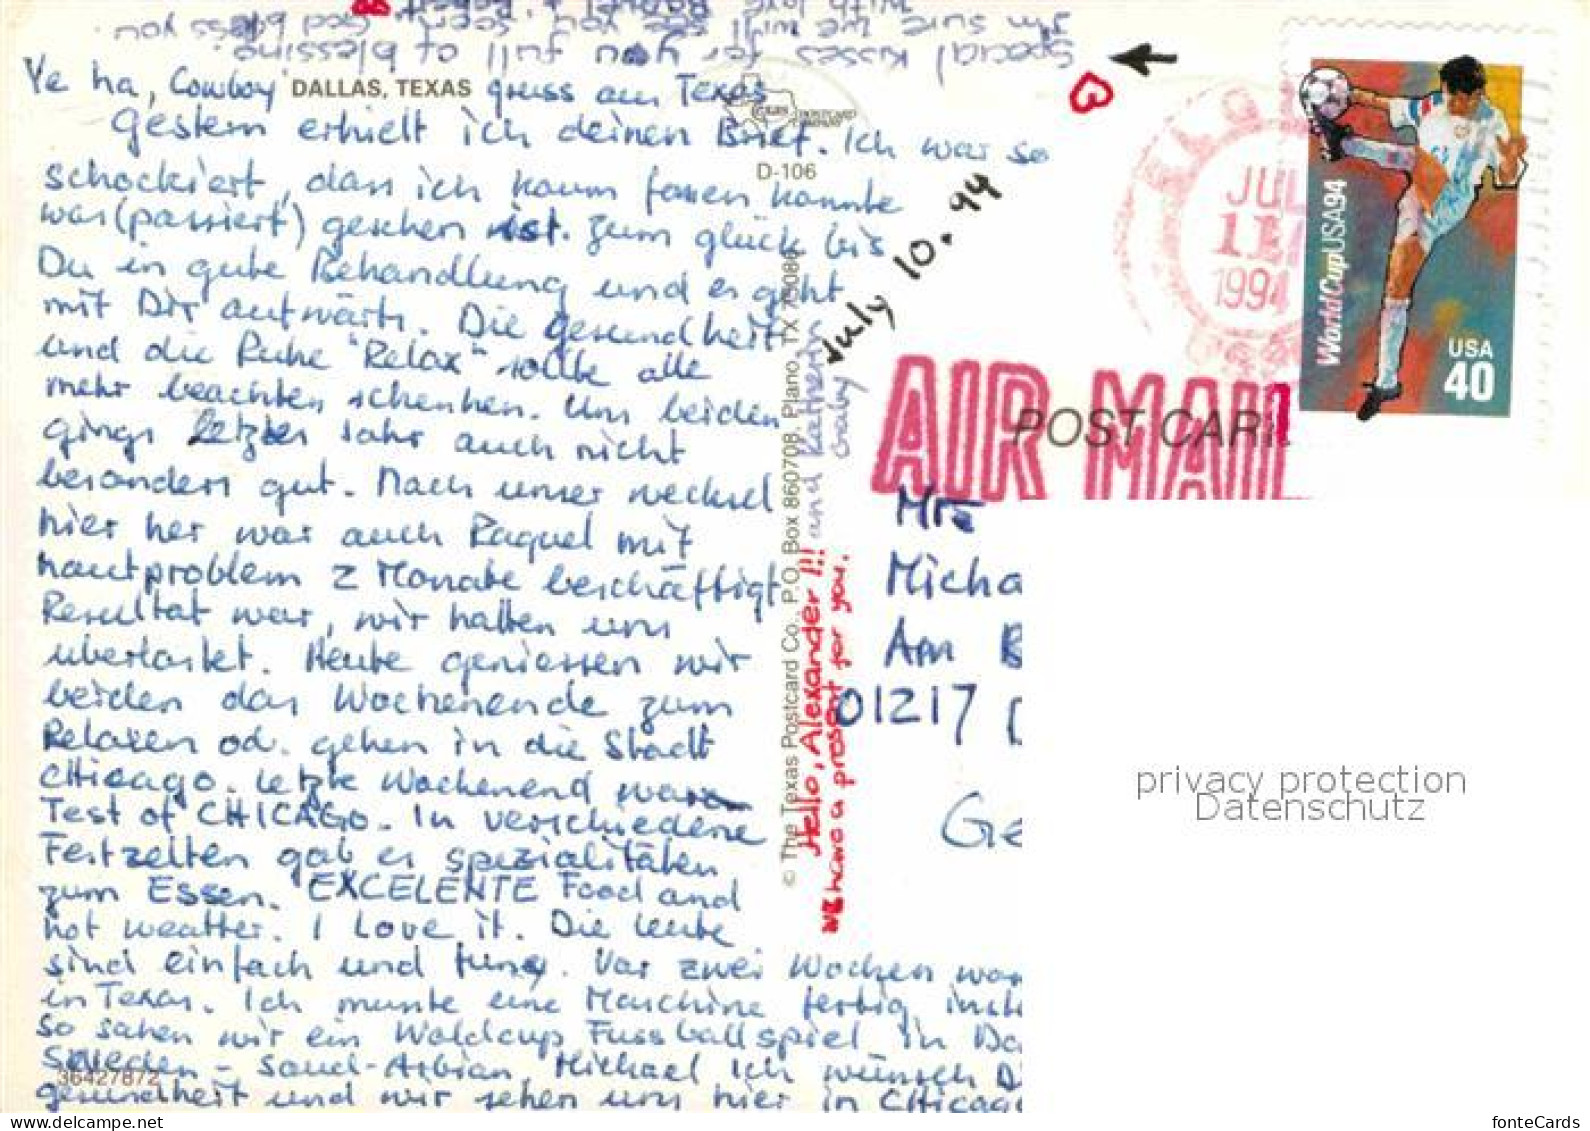 with love
I'm sure we will see you soon. God bless you
Special kisses for you full of blessing
Ye ha, Cowboy gruss aus Texas
DALLAS, TEXAS
D-106
gestern erhielt ich deinen Brief. Ich war so
schockiert, dass ich kaum fassen konnte
was (passiert) geschen ist. Zum glück bis
Du in gute Behandlung und es geht
mit Dir aufwärts. Die gesundheit
und die Ruhe "Relax" sollte alle
mehr beachten schenken. Uns beiden
gings letztes Jahr auch nicht
besonders gut. Nach unser wechsel
hier her war auch Raquel mit
hautproblem 2 Monate beschäftigt
Resultat war, wir hatten uns
uberlastet. Heute geniessen wir
beiden das Wochenende zum
Relaxen od. gehen in die Stadt
CHicago. letzte Wochenend war
Test of CHICAGO. In verschiedene
Festzelten gab es spezialitäten
zum Essen. EXCELENTE Food and
hot weather. I Love it. Die leute
sind einfach und funny. Vor zwei Wochen war
in Texas. Ich musste eine Maschine fertig inst
so sahen wir ein Woldcup Fussballspiel in Da
Sweden - Saud-Arbian Michael Ich wünsch D
gesundheit und wir sehen uns hier in CHicago
36427872
© The Texas Postcard Co., P.O. Box 860708, Plano, TX 75086
Hello, Alexander!!! and Katherin
we have a present for you.
Gaby
July 10. 94
JUL
11
1994
AIR MAIL
POST CARD
WorldCupUSA94
USA
40
Micha
Am B
01217
Ge
privacy protection
Datenschutz
fonteCards